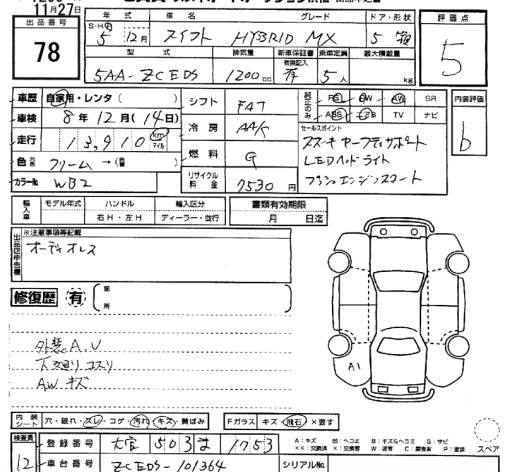 11月27日
出品番号 年式 車名 グレード ドア・形状 評価点
78 S・H・R 5年 12月 スイフト HYBRID MX 5 箱 5
型式 排気量 新車保証書 乗車定員 最大積載量
有無記入
5AA-ZCEDS 1200cc 有 5人 kg
車歴 自家用・レンタ シフト FAT 純正のみ SR 内装評価
車検 8年12月(14日) 冷房 AAC ABS TV ナビ b
走行 13,910 km マイル 燃料 G セールスポイント
スズキセーフティサポート
LEDヘッドライト
プッシュエンジンスタート
色 クリーム→
カラーNo WB2 リサイクル料金 7530円
輸入車 モデル年式 ハンドル 輸入区分 書類有効期限
右H・左H ディーラー・並行 月 日迄
※注意事項等記載
オーディオレス
修復歴 有 箇所
外装A,U
下廻りコスリ
AWキズ
A1
内装シート 穴・破れ・スレ・コゲ・汚れ・キズ・黄ばみ Fガラス キズ・飛石・×要す
検査員 登録番号 大宮 503 ま 1753 A:キズ B:キズ&ヘコミ S:サビ
××:交換済 ×:要交換 W:波有 C:腐食有 P:塗装 スペア
12 車台番号 ZCEDS-101364 シリアルNo.